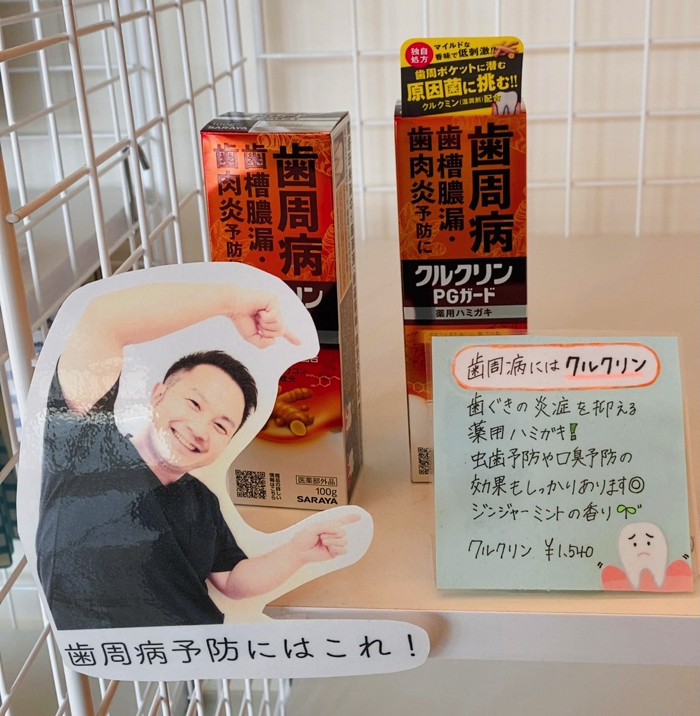 独自処方
マイルドな
香味で低刺激!!
歯周ポケットに潜む
原因菌に挑む!!
クルクミン(湿潤剤)配合
SARAYA
歯周病
歯槽膿漏・
歯肉炎予防に
クルクリン
PGガード
薬用ハミガキ
歯周病
歯槽膿漏・
歯肉炎予防
リン
医薬部外品
100g
SARAYA
歯周病には クルクリン
歯ぐきの炎症を抑える
薬用ハミガキ!
虫歯予防や口臭予防の
効果もしっかりあります◎
ジンジャーミントの香り
クルクリン ¥1,540
歯周病予防にはこれ!